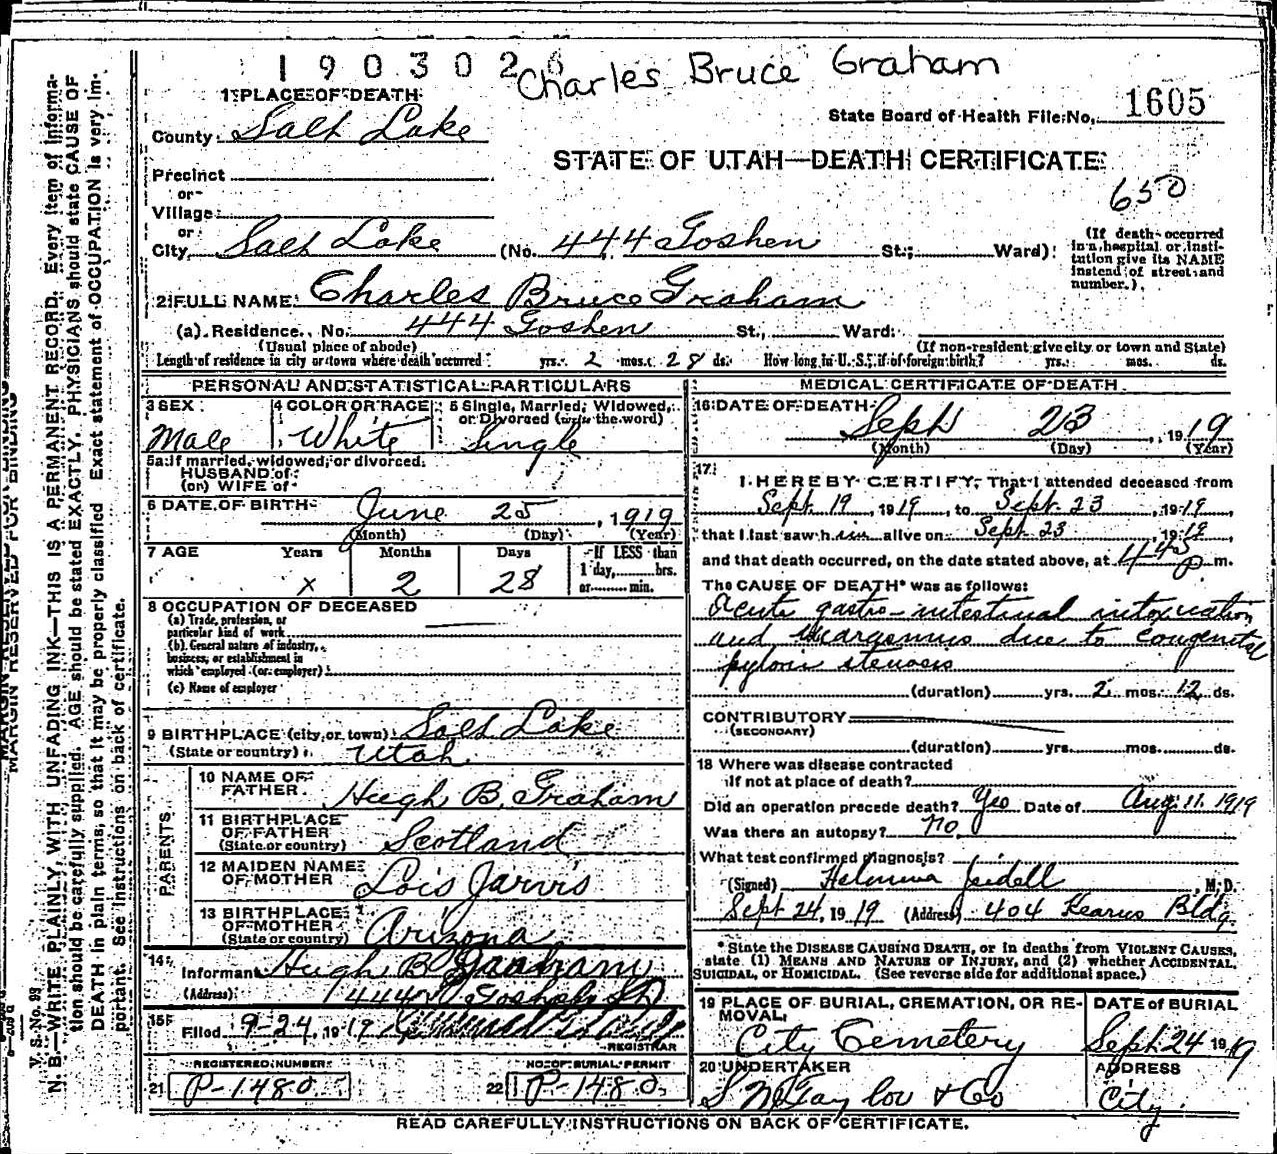 1903026
Charles Bruce Graham
1 PLACE OF DEATH
County Salt Lake
State Board of Health File No. 1605
STATE OF UTAH—DEATH CERTIFICATE
650
Precinct
or
Village
or
City Salt Lake (No. 444 Goshen St.; Ward)
(If death occurred
in a hospital or insti-
tution give its NAME
instead of street and
number.)
2 FULL NAME Charles Bruce Graham
(a) Residence. No. 444 Goshen St., Ward.
(Usual place of abode) (If non-resident give city or town and State)
Length of residence in city or town where death occurred yrs. 2 mos. 28 ds. How long in U. S., if of foreign birth? yrs. mos. ds.
PERSONAL AND STATISTICAL PARTICULARS
3 SEX 4 COLOR OR RACE 5 Single, Married, Widowed,
or Divorced (write the word)
Male White Single
5a If married, widowed, or divorced
HUSBAND of
(or) WIFE of
6 DATE OF BIRTH June 25, 1919
(Month) (Day) (Year)
7 AGE Years Months Days If LESS than
1 day, hrs.
or min.
x 2 28
8 OCCUPATION OF DECEASED
(a) Trade, profession, or
particular kind of work
(b) General nature of industry,
business, or establishment in
which employed (or employer)
(c) Name of employer
9 BIRTHPLACE (city or town) Salt Lake
(State or country) Utah
PARENTS
10 NAME OF
FATHER Hugh B. Graham
11 BIRTHPLACE
OF FATHER
(State or country) Scotland
12 MAIDEN NAME
OF MOTHER Lois Jarvis
13 BIRTHPLACE
OF MOTHER
(State or country) Arizona
14
Informant Hugh B Graham
(Address) 444 Goshen St
15
Filed 9-24, 1919
REGISTRAR
REGISTERED NUMBER NO. OF BURIAL PERMIT
21 P-1480 22 P-1480
MEDICAL CERTIFICATE OF DEATH
16 DATE OF DEATH Sept 23, 1919
(Month) (Day) (Year)
17
I HEREBY CERTIFY, That I attended deceased from
Sept. 19, 1919, to Sept. 23, 1919,
that I last saw him alive on Sept 23, 1919,
and that death occurred, on the date stated above, at 4:45 p m.
The CAUSE OF DEATH* was as follows:
Acute gastro-intestinal intoxication
and Marasmus due to congenital
pyloric stenosis
(duration) yrs. 2 mos. 12 ds.
CONTRIBUTORY
(SECONDARY)
(duration) yrs. mos. ds.
18 Where was disease contracted
if not at place of death?
Did an operation precede death? Yes Date of Aug. 11. 1919
Was there an autopsy? no.
What test confirmed diagnosis?
(Signed) , M. D.
Sept 24, 1919 (Address) 404 Kearns Bldg.
*State the DISEASE CAUSING DEATH, or in deaths from VIOLENT CAUSES,
state (1) MEANS AND NATURE OF INJURY, and (2) whether ACCIDENTAL,
SUICIDAL, or HOMICIDAL. (See reverse side for additional space.)
19 PLACE OF BURIAL, CREMATION, OR RE-
MOVAL, DATE of BURIAL
City Cemetery Sept 24 1919
20 UNDERTAKER ADDRESS
City.
READ CAREFULLY INSTRUCTIONS ON BACK OF CERTIFICATE.
MARGIN RESERVED FOR BINDING
V. S. No. 93
N. B.—WRITE PLAINLY, WITH UNFADING INK—THIS IS A PERMANENT RECORD. Every item of informa-
tion should be carefully supplied. AGE should be stated EXACTLY. PHYSICIANS should state CAUSE OF
DEATH in plain terms, so that it may be properly classified. Exact statement of OCCUPATION is very im-
portant. See instructions on back of certificate.